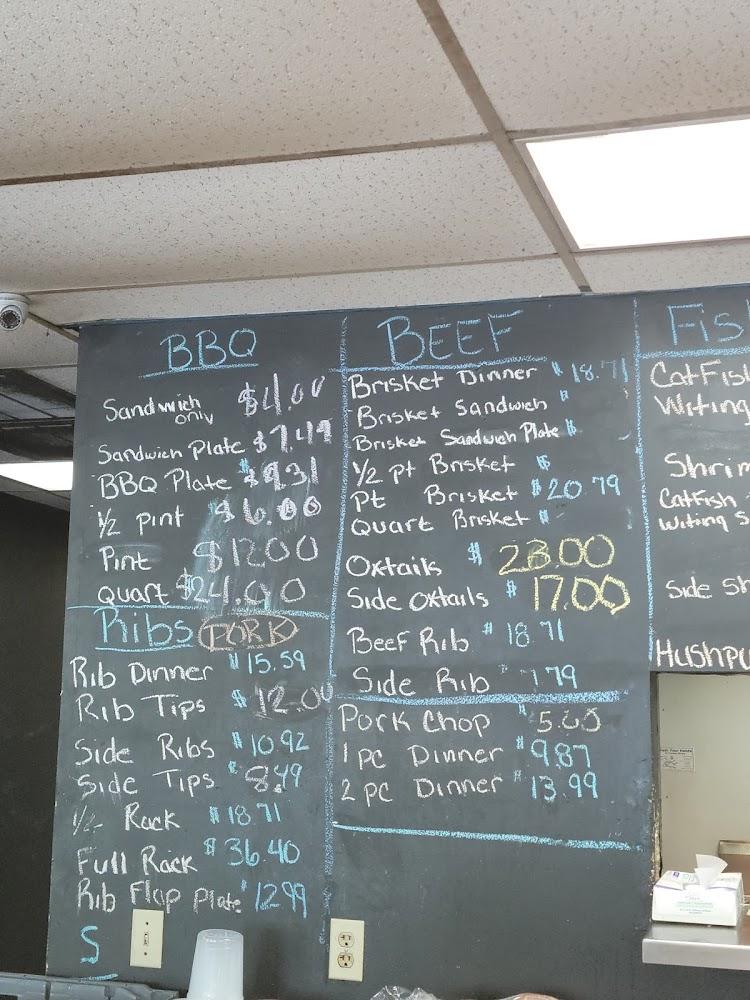 BBQ
Sandwich only $4.00
Sandwich Plate $7.49
BBQ Plate $9.31
1/2 pint $6.00
Pint $12.00
quart $24.00
Ribs PORK
Rib Dinner $15.59
Rib Tips $12.00
Side Ribs $10.92
Side Tips $8.49
1/2 Rack $18.71
Full Rack $36.40
Rib Flap Plate $12.99
S
BEEF
Brisket Dinner $18.71
Brisket Sandwich $
Brisket Sandwich Plate $
1/2 pt Brisket $
Pt Brisket $20.79
Quart Brisket $
Oxtails $23.00
Side Oxtails $17.00
Beef Rib $18.71
Side Rib 7.79
Pork Chop $5.60
1 pc Dinner $9.87
2 pc Dinner $13.99
Fis
CatFis
Witing
Shrim
CatFish
Witing S
Side Sh
Hushpu